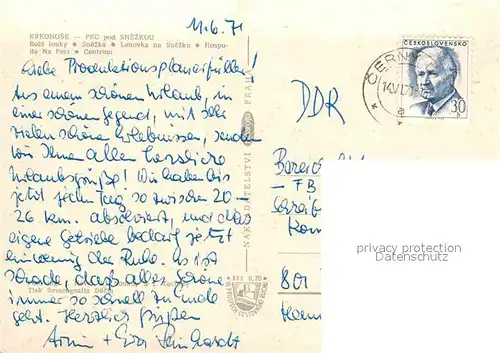 11.6.71
KRKONOŠE — PEC pod SNĚŽKOU
Bobí louky ● Sněžka ● Lanovka na Sněžku ● Hospoda Na Peci ● Centrum
ČESKOSLOVENSKO
30
14.VI.71
DDR
Liebe Produktionsplanerfüller!
Aus einem schönen Urlaub, in
einer schönen Gegend, mit sehr
vielen schönen Erlebnissen, senden
wir Ihnen allen herzliche
Urlaubsgrüße! Wir haben bis
jetzt jeden Tag so zwischen 20-
26 km. absolviert, und das
eigene Getriebe bedarf jetzt
ein wenig der Ruhe. Es ist
schade, daß alles Schöne
immer so schnell zu Ende
geht. Herzlich grüßen
Armin + Eva
NAKLADATELSTVÍ
PRAHA
Tisk Severografia Děčín
0,70
Bereich
- FB
801
privacy protection
Datenschutz